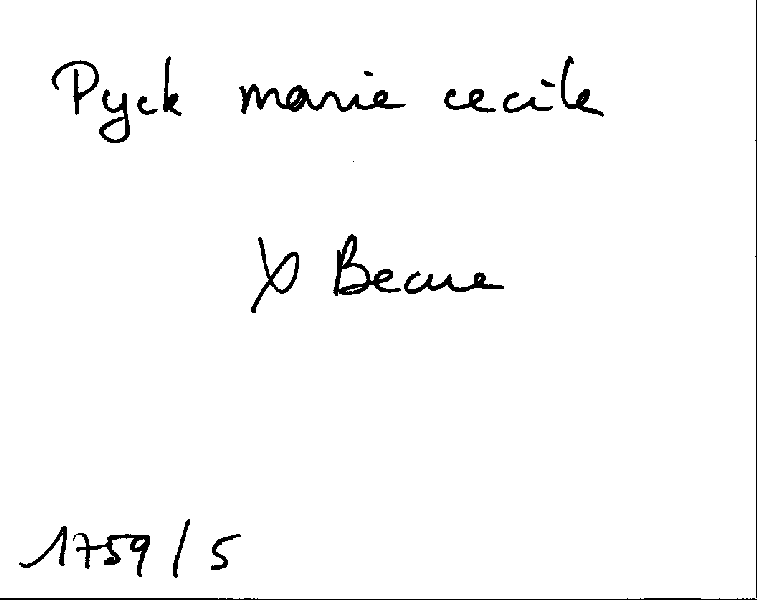 Pyck marie cecile
X Becue
1759 / 5